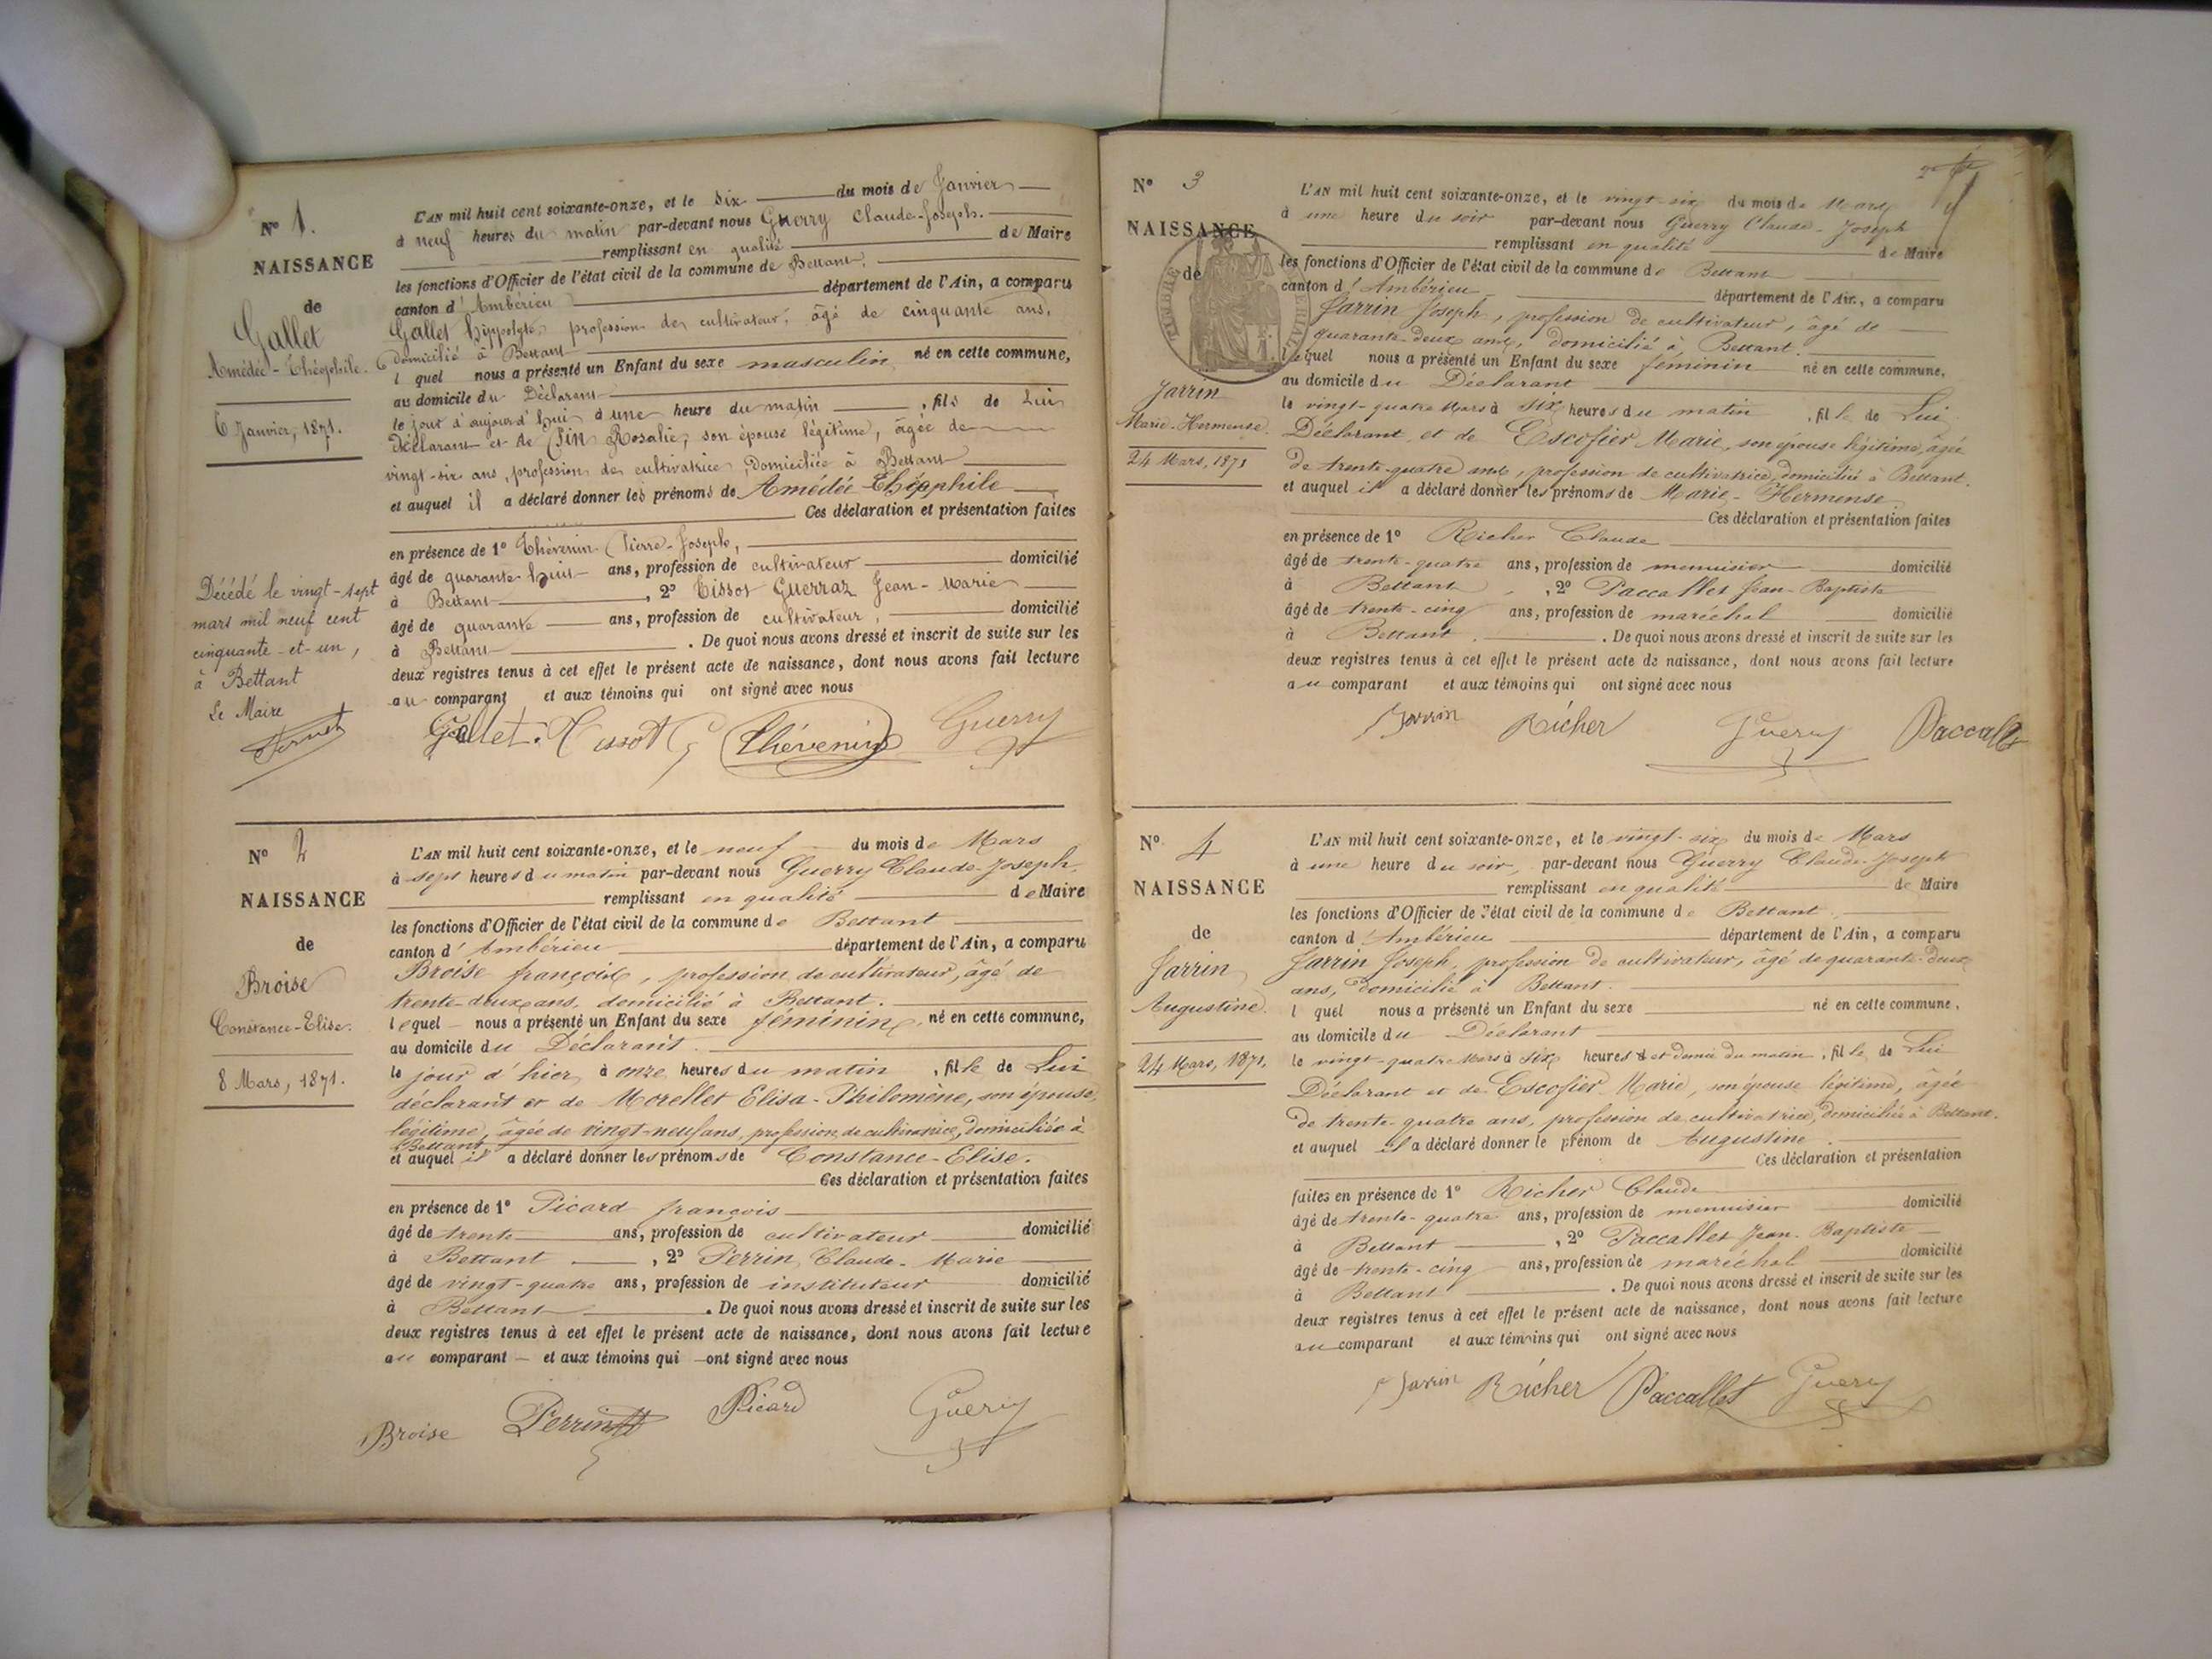 N° 1.
NAISSANCE
de
Gallet
Amédée-Théophile.
6 Janvier, 1871.
L'AN mil huit cent soixante-onze, et le six du mois de Janvier
à neuf heures du matin par-devant nous Guerry Claude-Joseph.
remplissant en qualité de Maire
les fonctions d'Officier de l'état civil de la commune de Bettant,
canton d'Ambérieu département de l'Ain, a comparu
Gallet hippolyte, profession de cultivateur, âgé de cinquante ans,
domicilié à Bettant
lequel nous a présenté un Enfant du sexe masculin né en cette commune,
au domicile du Déclarant
le jour d'aujourd'hui à une heure du matin, fils de Lui
Déclarant et de Pin Rosalie, son épouse légitime, âgée de
vingt-six ans, profession de cultivatrice, domiciliée à Bettant
et auquel il a déclaré donner les prénoms de Amédée Théophile
Ces déclaration et présentation faites
en présence de 1° Thévenin Pierre-Joseph,
âgé de quarante-huit ans, profession de cultivateur domicilié
à Bettant, 2° Tissot Guerraz Jean-Marie
âgé de quarante ans, profession de cultivateur, domicilié
à Bettant. De quoi nous avons dressé et inscrit de suite sur les
deux registres tenus à cet effet le présent acte de naissance, dont nous avons fait lecture
au comparant et aux témoins qui ont signé avec nous
Gallet. Tissot G Thévenin Guerry
Décédé le vingt-sept
mars mil neuf cent
cinquante-et-un,
à Bettant
Le Maire
N° 2
NAISSANCE
de
Broise
Constance-Elise.
8 Mars, 1871.
L'AN mil huit cent soixante-onze, et le neuf du mois de Mars
à sept heures du matin par-devant nous Guerry Claude-Joseph,
remplissant en qualité de Maire
les fonctions d'Officier de l'état civil de la commune de Bettant
canton d'Ambérieu département de l'Ain, a comparu
Broise françois, profession de cultivateur, âgé de
trente-deux ans, domicilié à Bettant.
lequel nous a présenté un Enfant du sexe féminin, né en cette commune,
au domicile du Déclarant.
le jour d'hier, à onze heures du matin, fille de Lui
déclarant et de Morellet Elisa-Philomène, son épouse,
légitime, âgée de vingt-neuf ans, profession de cultivatrice, domiciliée à
Bettant,
et auquel il a déclaré donner les prénoms de Constance-Elise.
Ces déclaration et présentation faites
en présence de 1° Picard françois
âgé de trente ans, profession de cultivateur domicilié
à Bettant, 2° Perrin Claude-Marie
âgé de vingt-quatre ans, profession de instituteur domicilié
à Bettant. De quoi nous avons dressé et inscrit de suite sur les
deux registres tenus à cet effet le présent acte de naissance, dont nous avons fait lecture
au comparant et aux témoins qui ont signé avec nous
Broise Perrin Picard Guerry
N° 3
NAISSANCE
de
Jarrin
Marie-Hermense.
24 Mars, 1871
L'AN mil huit cent soixante-onze, et le vingt-six du mois de Mars
à une heure du soir par-devant nous Guerry Claude-Joseph
remplissant en qualité de Maire
les fonctions d'Officier de l'état civil de la commune de Bettant
canton d'Ambérieu département de l'Ain, a comparu
Jarrin Joseph, profession de cultivateur, âgé de
quarante-deux ans, domicilié à Bettant.
lequel nous a présenté un Enfant du sexe féminin né en cette commune,
au domicile du Déclarant
le vingt-quatre Mars à six heures du matin, fille de Lui
Déclarant et de Escofier Marie, son épouse légitime, âgée
de trente-quatre ans, profession de cultivatrice, domiciliée à Bettant.
et auquel il a déclaré donner les prénoms de Marie-Hermense
Ces déclaration et présentation faites
en présence de 1° Richer Claude
âgé de trente-quatre ans, profession de menuisier domicilié
à Bettant, 2° Paccallet Jean-Baptiste
âgé de trente-cinq ans, profession de maréchal domicilié
à Bettant. De quoi nous avons dressé et inscrit de suite sur les
deux registres tenus à cet effet le présent acte de naissance, dont nous avons fait lecture
au comparant et aux témoins qui ont signé avec nous
Jarrin Richer Guerry Paccallet
N° 4
NAISSANCE
de
Jarrin
Augustine.
24 Mars, 1871.
L'AN mil huit cent soixante-onze, et le vingt-six du mois de Mars
à une heure du soir, par-devant nous Guerry Claude-Joseph
remplissant en qualité de Maire
les fonctions d'Officier de l'état civil de la commune de Bettant,
canton d'Ambérieu département de l'Ain, a comparu
Jarrin Joseph, profession de cultivateur, âgé de quarante-deux
ans, domicilié à Bettant.
l quel nous a présenté un Enfant du sexe né en cette commune,
au domicile du Déclarant
le vingt-quatre Mars à six heures et demie du matin, fille de Lui
Déclarant et de Escofier Marie, son épouse légitime, âgée
de trente-quatre ans, profession de cultivatrice, domiciliée à Bettant.
et auquel il a déclaré donner le prénom de Augustine.
Ces déclaration et présentation
faites en présence de 1° Richer Claude
âgé de trente-quatre ans, profession de menuisier domicilié
à Bettant, 2° Paccallet Jean-Baptiste
âgé de trente-cinq ans, profession de maréchal domicilié
à Bettant. De quoi nous avons dressé et inscrit de suite sur les
deux registres tenus à cet effet le présent acte de naissance, dont nous avons fait lecture
au comparant et aux témoins qui ont signé avec nous
Jarrin Richer Paccallet Guerry